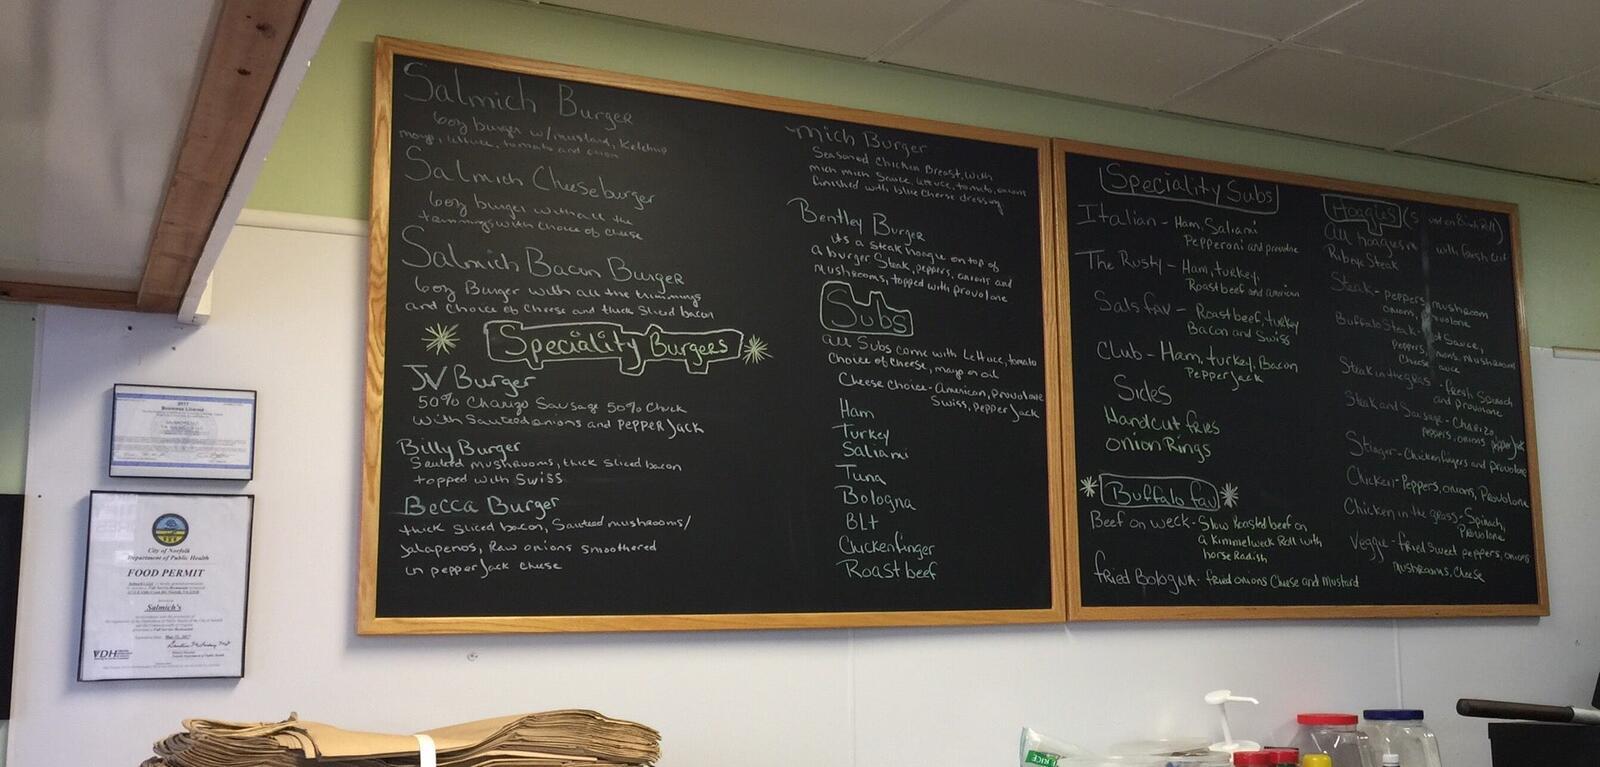 Salmich Burger
6oz burger w/mustard, Ketchup
mayo, lettuce, tomato and onion
Salmich Cheeseburger
6oz burger with all the
trimmings with choice of cheese
Salmich Bacon Burger
6oz Burger with all the trimmings
and choice of cheese and thick sliced bacon
Speciality Burgers
JV Burger
50% Charizo Sausage 50% Chuck
with Sauted onions and PEPPER Jack
Billy Burger
Sauted mushrooms, thick sliced bacon
topped with Swiss
Becca Burger
thick sliced bacon, Sauteed mushrooms/
Jalapenos, Raw onions Smoothered
in pepper Jack cheese
mich Burger
Seasoned Chicken Breast, with
mich mich Sauce, lettuce, tomato, onions
finished with blue cheese dressing
Bentley Burger
its a steak hoagie on top of
a burger Steak, peppers, onions and
mushrooms, topped with provolone
Subs
all Subs come with Lettuce, tomato
Choice of cheese, mayo or oil
Cheese choice - American, provolone
Swiss, pepper Jack
Ham
Turkey
Saliami
Tuna
Bologna
BLt
Chickenfinger
Roast beef
Speciality Subs
Italian - Ham, Saliami
Pepperoni and provolne
The Rusty - Ham, turkey,
Roastbeef and american
Sals fav - Roastbeef, turkey
Bacon and Swiss
Club - Ham, turkey, Bacon
PepperJack
Sides
Handcut fries
onion Rings
Buffalo fav
Beef on weck - Slow Roasted beef on
a Kimmelweck Roll with
horse Radish
fried Bologna - fried onions Cheese and Mustard
Hoagies (
All hoagies with fresh cut
Ribeye Steak
Steak - peppers, mushroom
onions, provolone
Buffalo Steak Sauce,
Peppers, mushrooms
Cheese
Steak in the grass - fresh Spinach
and provolone
Steak and Sausage - Charizo,
peppers, onions pepperJack
Stinger - Chickenfingers and provolone
Chicken - Peppers, onions, Provolone
Chicken in the grass - Spinach,
Provolone
Veggie - fried sweet peppers, onions
mushrooms, Cheese
2017
Business License
City of Norfolk
Department of Public Health
FOOD PERMIT
Salmich's
VDH
RICE